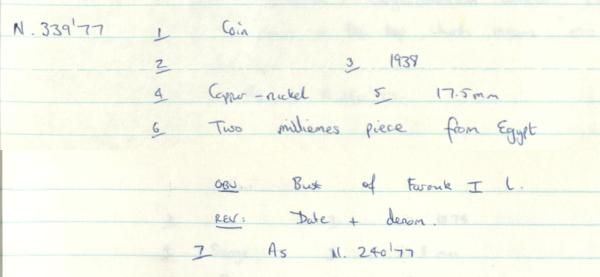 N. 339'77 1 Coin
2 3 1938
4 Copper-nickel 5 17.5mm
6 Two milliemes piece from Egypt
OBV: Bust of Farouk I L.
REV: Date + denom.
7 As N. 240'77